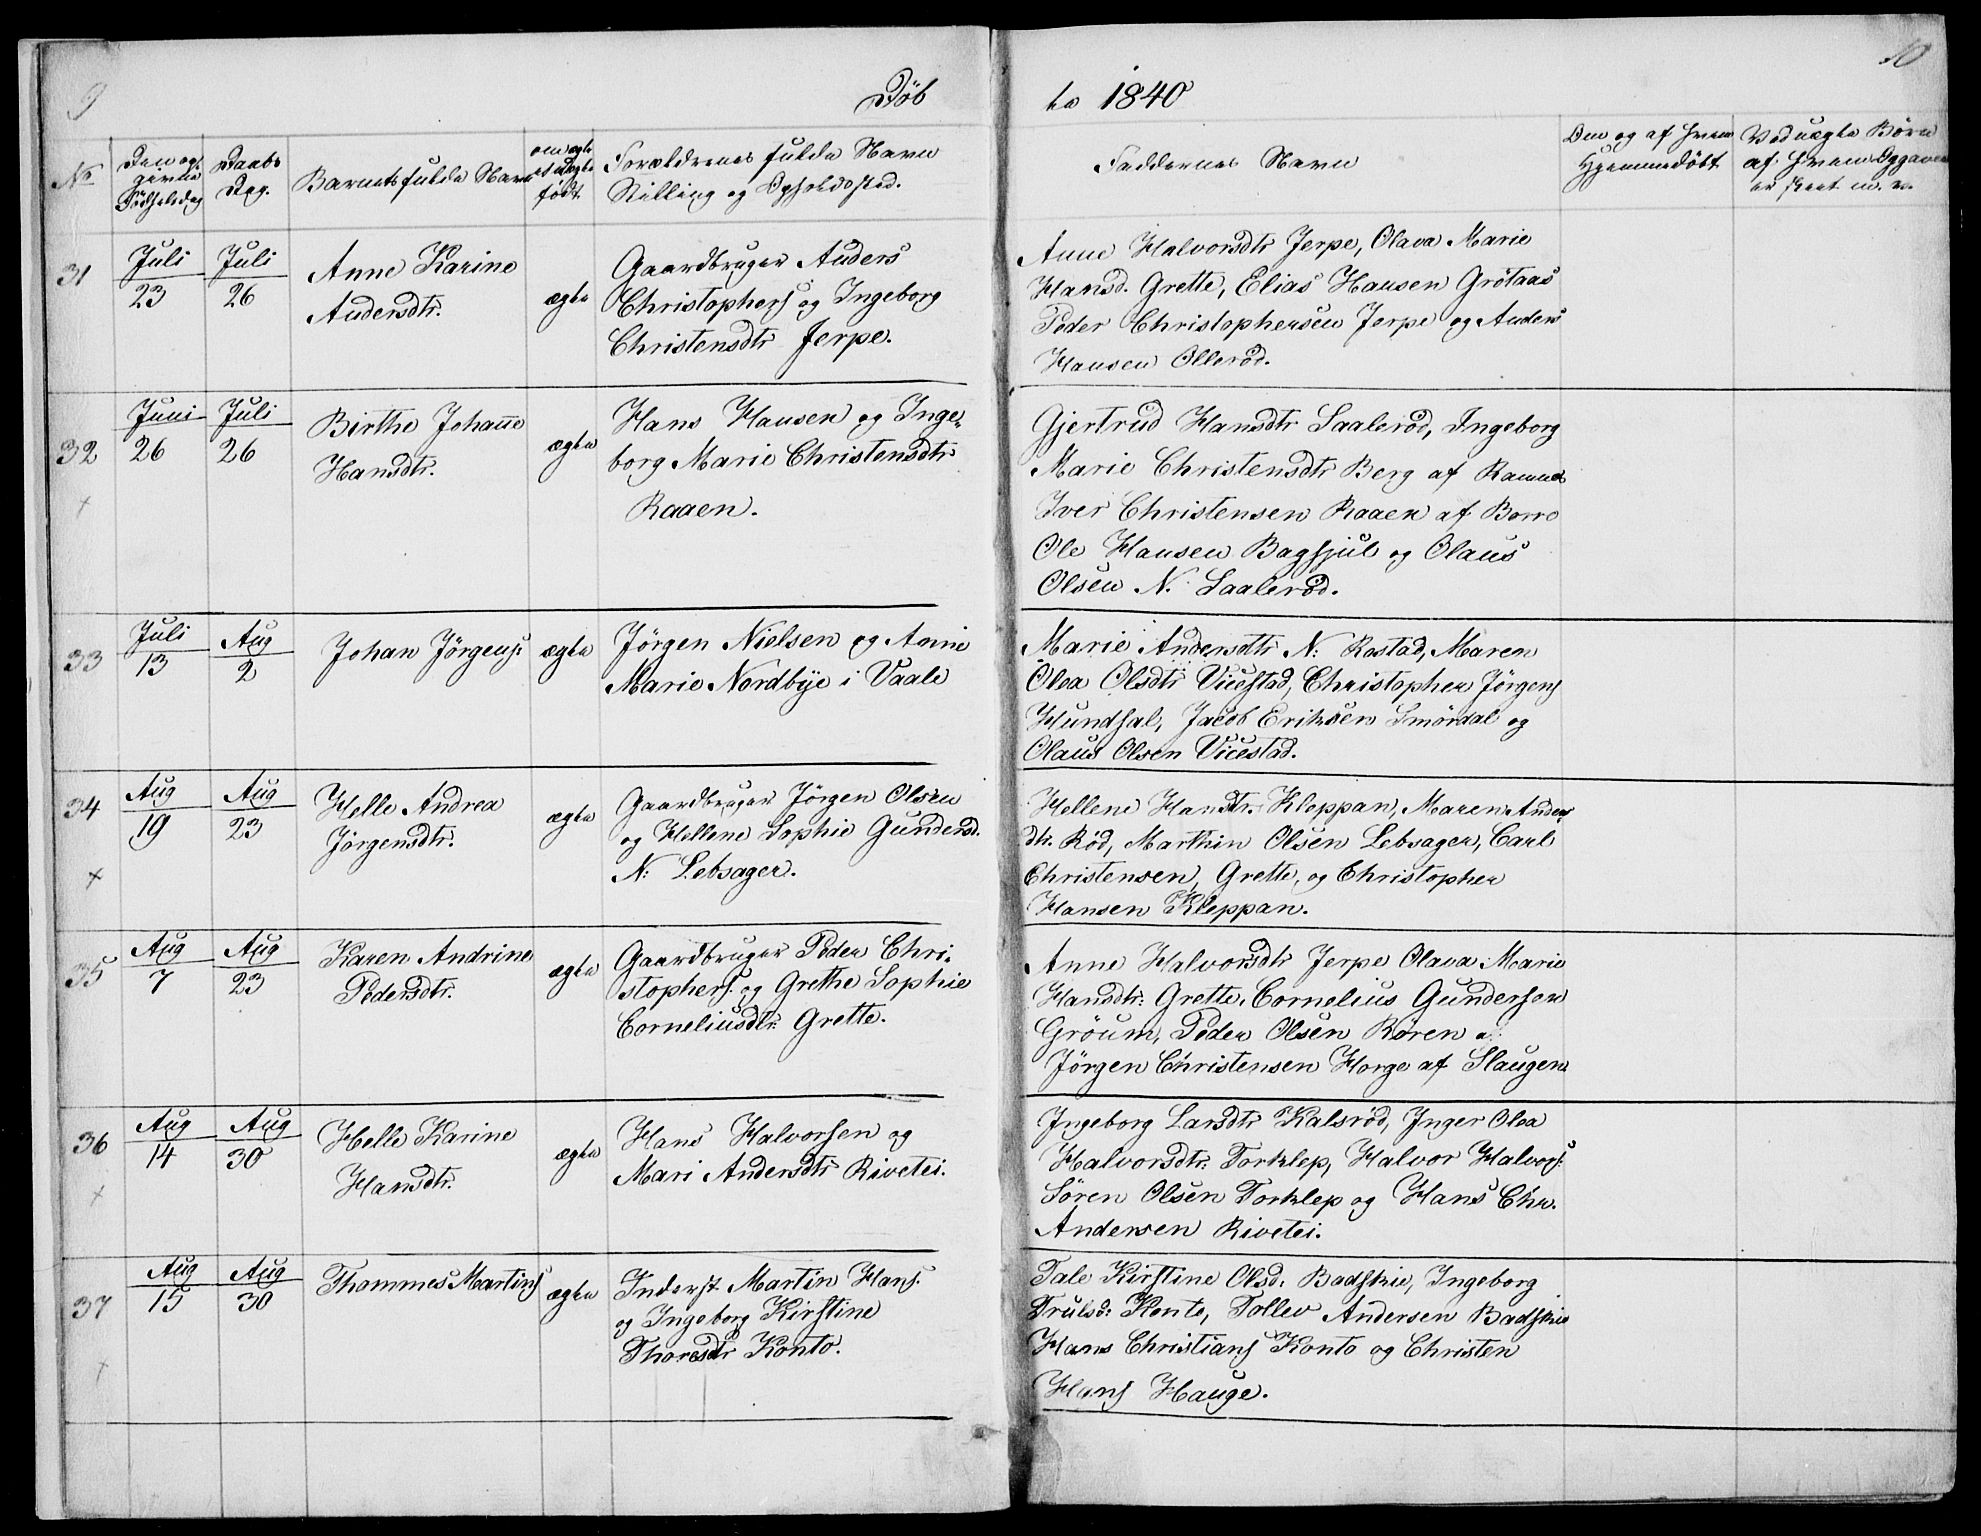 9
Döb
te 1840
10
No
Den op
givne
Födselsdag
Daabs
Dag.
Barnets fulde Navn
om ægte
et uægte
födt.
Forældrenes fulde Navn
Stilling og Opholdssted.
Faddernes Navn
Om og af hvem
Hjemmedöbt
Ved uægte Börn
af hvem Opgaven
er skeet m. v.
31
Juli
23
Juli
26
Anne Karine
Andersdtr.
ægte
Gaardbruger Anders
Christophers og Ingeborg
Christensdtr Jerpe.
Anne Halvorsdtr Jerpe, Olava Marie
Hansd. Grette, Elias Hansen Grötaas
Peder Christophersen Jerpe og Anders
Hansen Olleröd.
32
+
Juni
26
Juli
26
Birthe Johanne
Hansdtr.
ægte
Hans Hansen og Inge-
borg Marie Christensdtr
Raaen.
Gjertrud Hansdtr Saaleröd, Ingeborg
Marie Christensdtr Berg af Ramnes
Iver Christensen Raaen af Borre
Ole Hansen Bagsjul og Olaus
Olsen N. Saaleröd.
33
Juli
13
Aug
2
Johan Jörgens:
ægte
Jörgen Nielsen og Anne
Marie Nordbye i Vaale
Marie Andersdtr N: Rostad, Maren
Olea Olsdtr Vicestad, Christopher Jörgens
Hundsal, Jacob Eriksen Smördal og
Olaus Olsen Vicestad.
34
+
Aug
19
Aug
23
Helle Andrea
Jörgensdtr.
ægte
Gaardbruger Jörgen Olsen
og Hellene Sophie Gundersd.
N: Lebsager.
Hellene Hansdtr. Kleppan, Maren Anders
dtr. Röd, Marthin Olsen Lebsager, Carl
Christensen, Grette, og Christopher
Hansen Kleppan.
35
Aug
7
Aug
23
Karen Andrine
Pedersdtr.
ægte
Gaardbruger Peder Chri-
stophers. og Grethe Sophie
Corneliusdtr. Grette.
Anne Halvorsdtr Jerpe Olava Marie
Hansdtr: Grette, Cornelius Gundersen
Gröum, Peder Olsen Rören
Jörgen Christensen Horge af Slaugen
36
+
Aug
14
Aug
30
Helle Karine
Hansdtr.
ægte
Hans Halvorsen og
Mari Andersdtr Rivetei.
Ingeborg Larsdtr Kalsröd, Inger Olea
Halvorsdtr. Torklep, Halvor Halvors:
Sören Olsen Torklep og Hans Chr.
Andersen Rivetei.
37
+
Aug
15
Aug
30
Thommes Martins
ægte
Inderst Martin Hans.
og Ingeborg Kirstine
Thoresdtr Konto.
Tale Kirstine Olsd: Badskie, Ingeborg
Trulsd: Konto, Tollev Andersen Badskie
Hans Christians Konto og Christen
Hans Hauge.